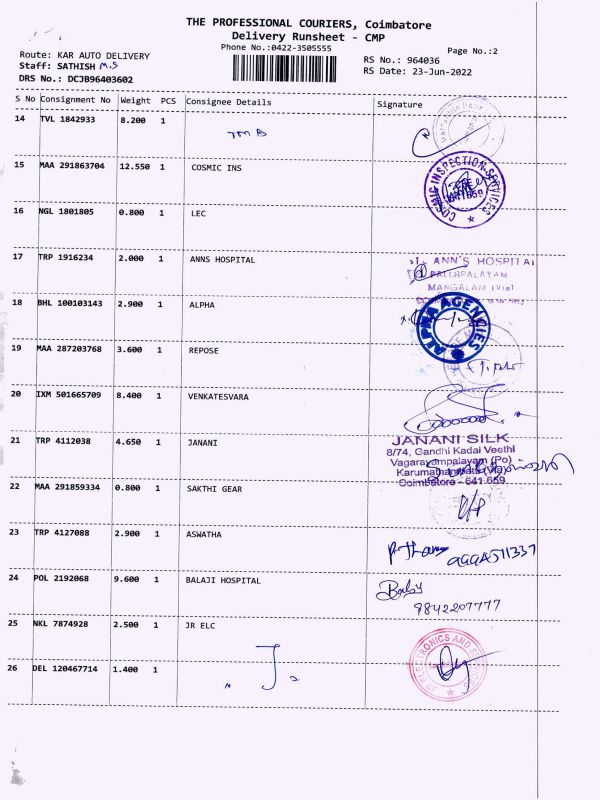 THE PROFESSIONAL COURIERS, Coimbatore
Delivery Runsheet - CMP
Phone No.:0422-3505555
Page No.:2
Route: KAR AUTO DELIVERY
Staff: SATHISH M.S
DRS No.: DCJB96403602
RS No.: 964036
RS Date: 23-Jun-2022
S No Consignment No Weight PCS Consignee Details Signature
14 TVL 1842933 8.200 1
15 MAA 291863704 12.550 1 COSMIC INS
COSMIC INSPECTION SERVICES
16 NGL 1801805 0.800 1 LEC
17 TRP 1916234 2.000 1 ANNS HOSPITAL
ANN'S HOSPITAL
PALLAPALAYAM
MANGALAM (Via)
18 BHL 100103143 2.900 1 ALPHA
ALPHA AGENCIES
19 MAA 287203768 3.600 1 REPOSE
20 IXM 501665709 8.400 1 VENKATESVARA
21 TRP 4112038 4.650 1 JANANI
JANANI SILK
8/74, Gandhi Kadai Veethi
Vagarayampalayam (Po)
Karumathampatti (Via)
Coimbatore - 641 659
22 MAA 291859334 0.800 1 SAKTHI GEAR
23 TRP 4127088 2.900 1 ASWATHA
24 POL 2192068 9.600 1 BALAJI HOSPITAL
Balaji
9842207777
25 NKL 7874928 2.500 1 JR ELC
JR ELECTRONICS AND SERVICES
26 DEL 120467714 1.400 1
" J "